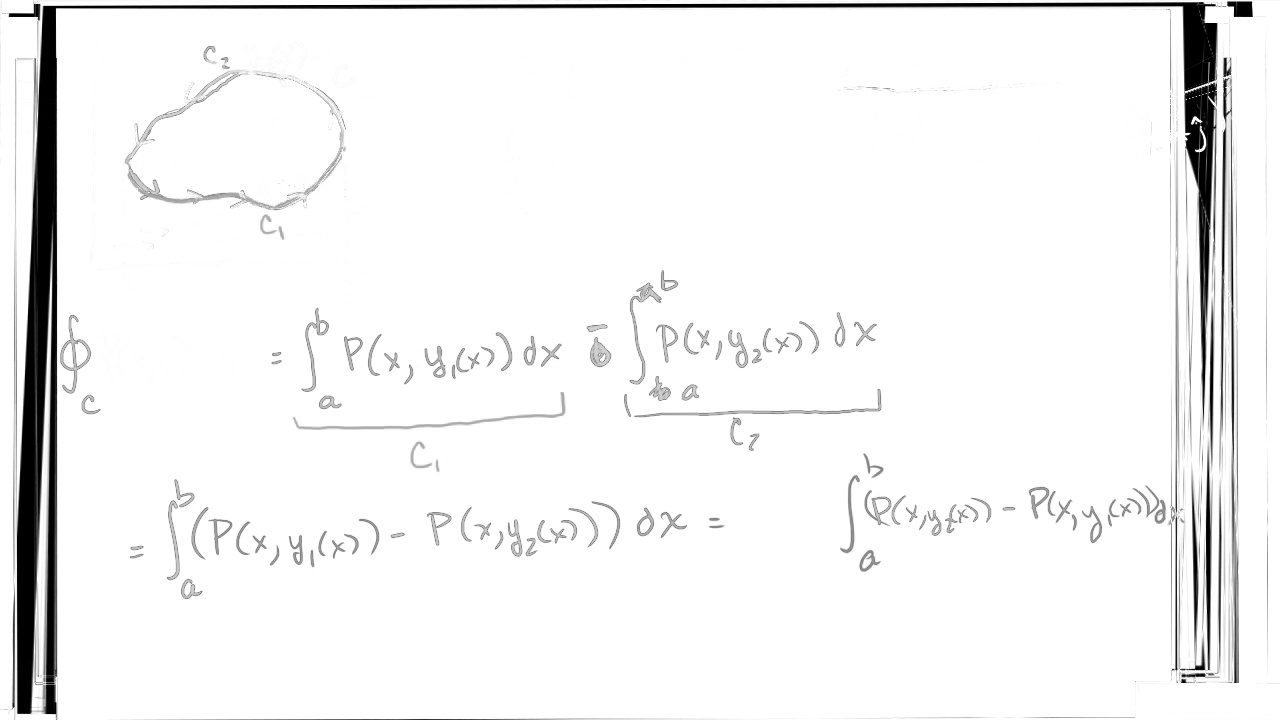 C₂
C₁
∮_C = ∫_a^b P(x, y₁(x)) dx - ∫_a^b P(x, y₂(x)) dx
C₁ C₂
= ∫_a^b (P(x, y₁(x)) - P(x, y₂(x))) dx = ∫_a^b (P(x, y₂(x)) - P(x, y₁(x))) dx
ĵ